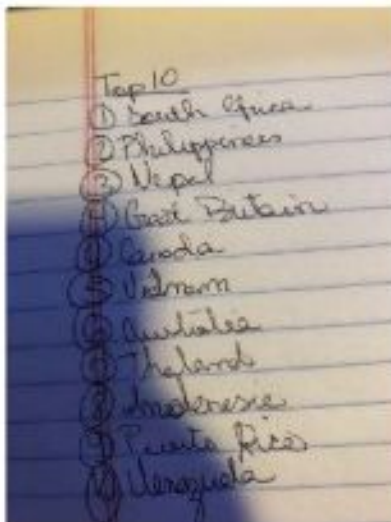 Top 10
① South Africa
② Philippines
③ Nepal
④ Great Britain
Canada
⑤ Vietnam
⑥ Australia
Thailand
⑧ Indonesia
⑨ Puerto Rico
Venezuela